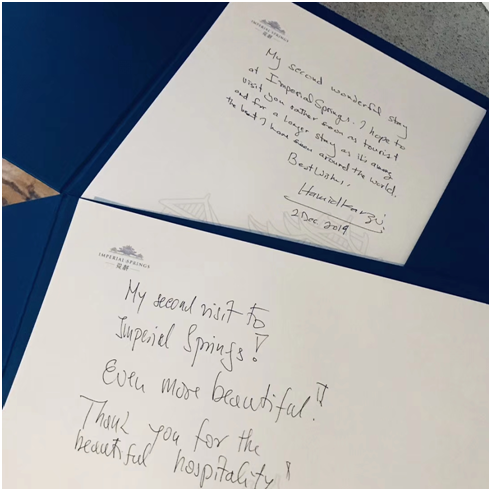 IMPERIAL SPRINGS
My second wonderful stay
at Imperial Springs. I hope to
visit you rather soon as tourist
and for a longer stay as it's among
the best I have seen around the world.
Best Wishes,
Hamid Karzai
2 Dec 2019
IMPERIAL SPRINGS
My second visit to
Imperial Springs!
Even more beautiful!
Thank you for the
beautiful hospitality!